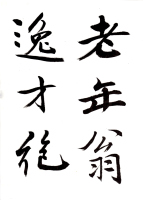 老年翁
逸才